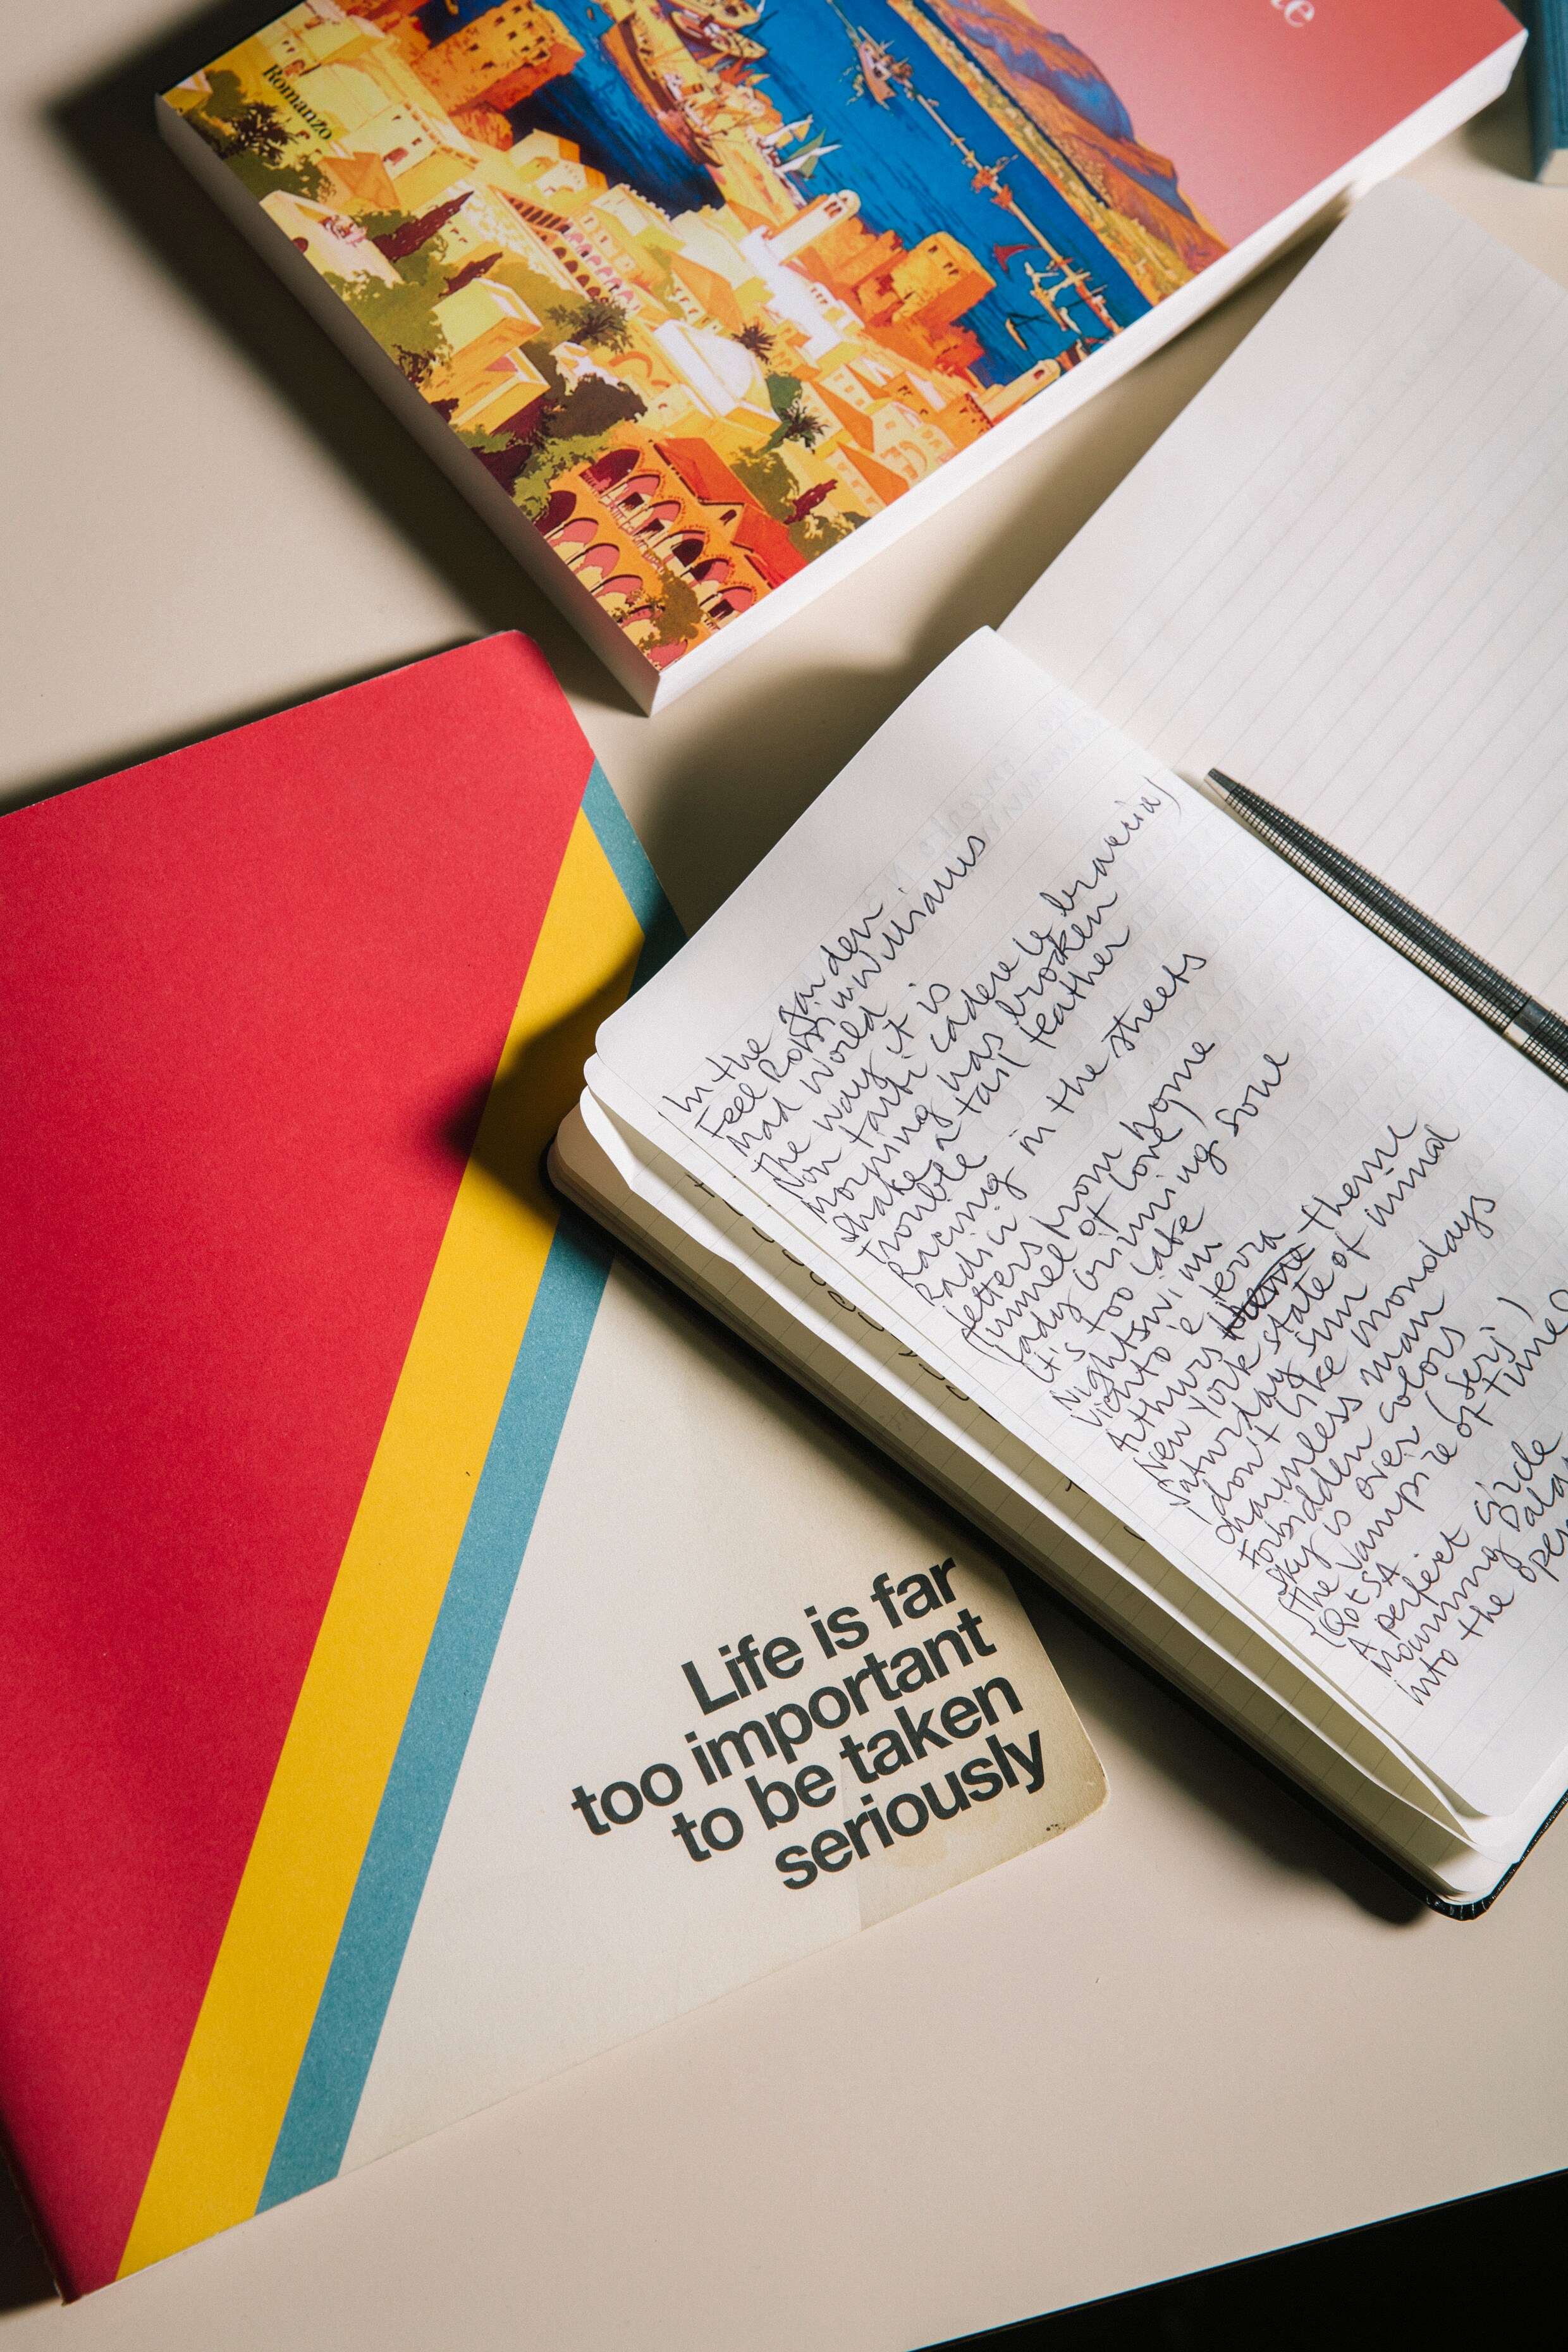 te
Romanzo
In the garden
Feel Robbin Williams
Mad World
The way it is
Non farti cadere le braccia)
Morning has broken
Shake a tail feather
Trouble
Racing in the streets
Radici
Letters from home
Tunnel of love
Lady grinning soul
It's too late
Nightswim
Vento e terra
Arthurs theme
New York state of mind
Saturday sun
I don't like mondays
Chainless man
Forbidden colors
Sky is over (Serj)
The Vampire of time
A perfect circle
Mourning Palac
Into the open
Life is far
too important
to be taken
seriously